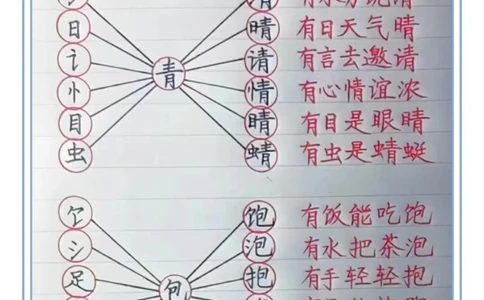 日 晴 有日天气晴
讠 请 有言去邀请
青
忄 情 有心情谊浓
目 睛 有目是眼睛
虫 蜻 有虫是蜻蜓
饣 饱 有饭能吃饱
氵 泡 有水把茶泡
足 抱 有手轻轻抱
包